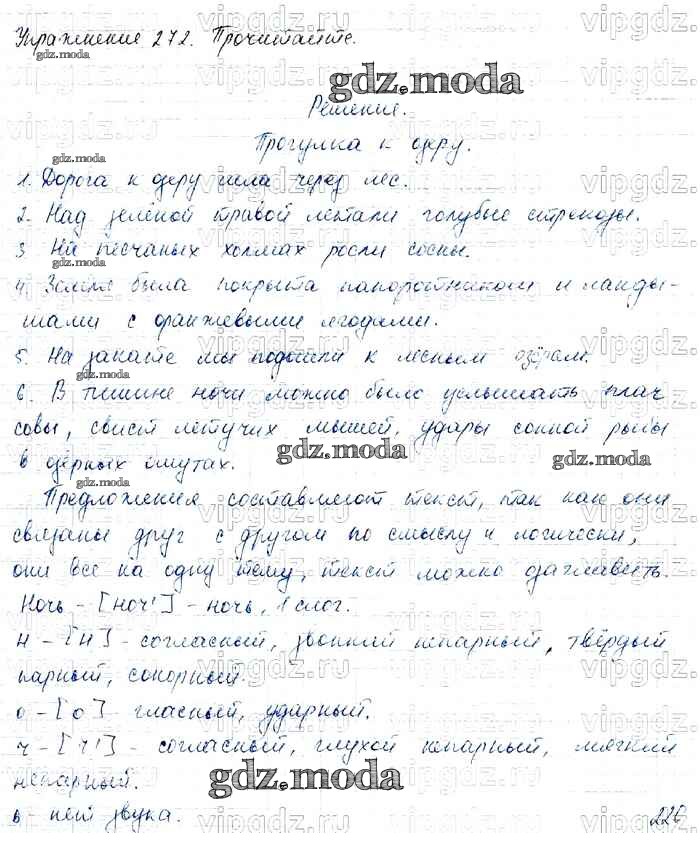 Упражнение 272. Прочитайте.
gdz.moda
gdz.moda
Решение.
Прогулка к озеру.
gdz.moda
1. Дорога к озеру шла через лес.
2. Над зелёной травой летали голубые стрекозы.
3. На песчаных холмах росли сосны.
gdz.moda
4. Земля была покрыта папоротником и ланды-
шами с оранжевыми ягодами.
5. На закате мы подошли к лесным озёрам.
gdz.moda
6. В тишине ночи можно было услышать плач
совы, свист летучих мышей, удары сонной рыбы
gdz.moda
в озёрных омутах.
gdz.moda
Предложения составляют текст, так как они
связаны друг с другом по смыслу и логически,
они все на одну тему, текст можно озаглавить.
Ночь - [ноч'] - ночь, 1 слог.
н - [н] - согласный, звонкий непарный, твёрдый
парный, сонорный.
о - [о] - гласный, ударный.
ч - [ч'] - согласный, глухой непарный, мягкий
непарный.
gdz.moda
ь - нет звука.
226
vipgdz.ru